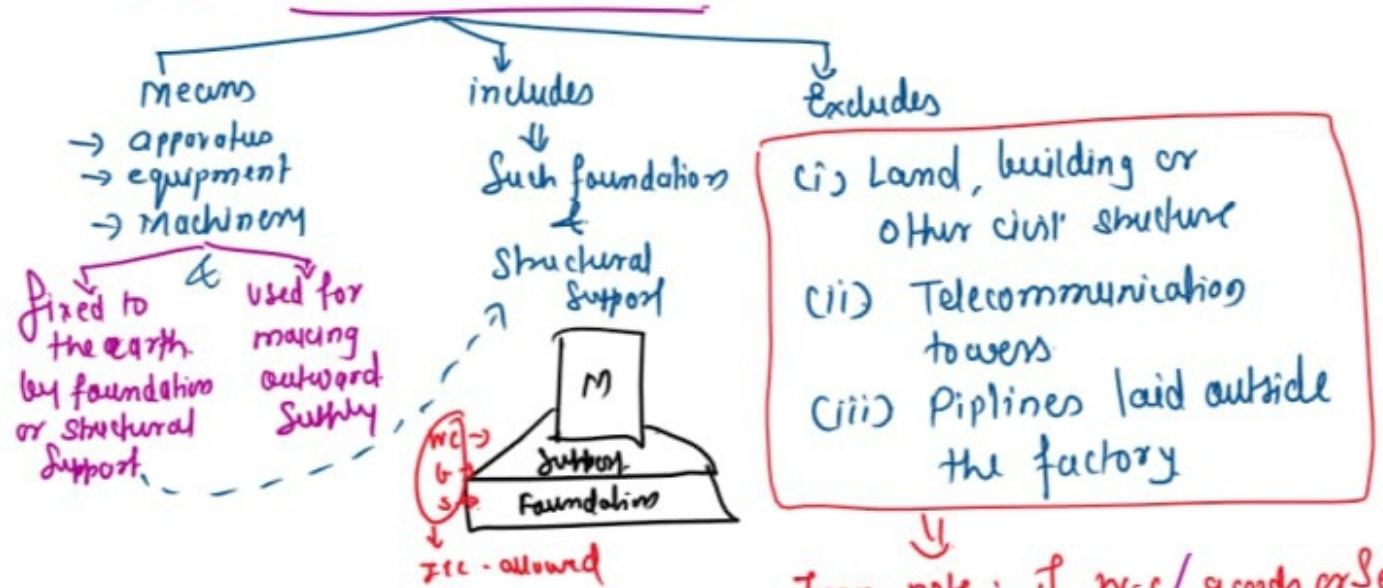 means
→ apparatus
→ equipment
→ Machinery
&
fixed to
the earth
by foundation
or structural
Support
used for
making
outward
Supply
includes
⇓
Such foundation
&
Structural
Support
M
Support
Foundation
WC →
G →
S →
ITC - allowed
Excludes
(i) Land, building or
other civil structure
(ii) Telecommunication
towers
(iii) Piplines laid outside
the factory